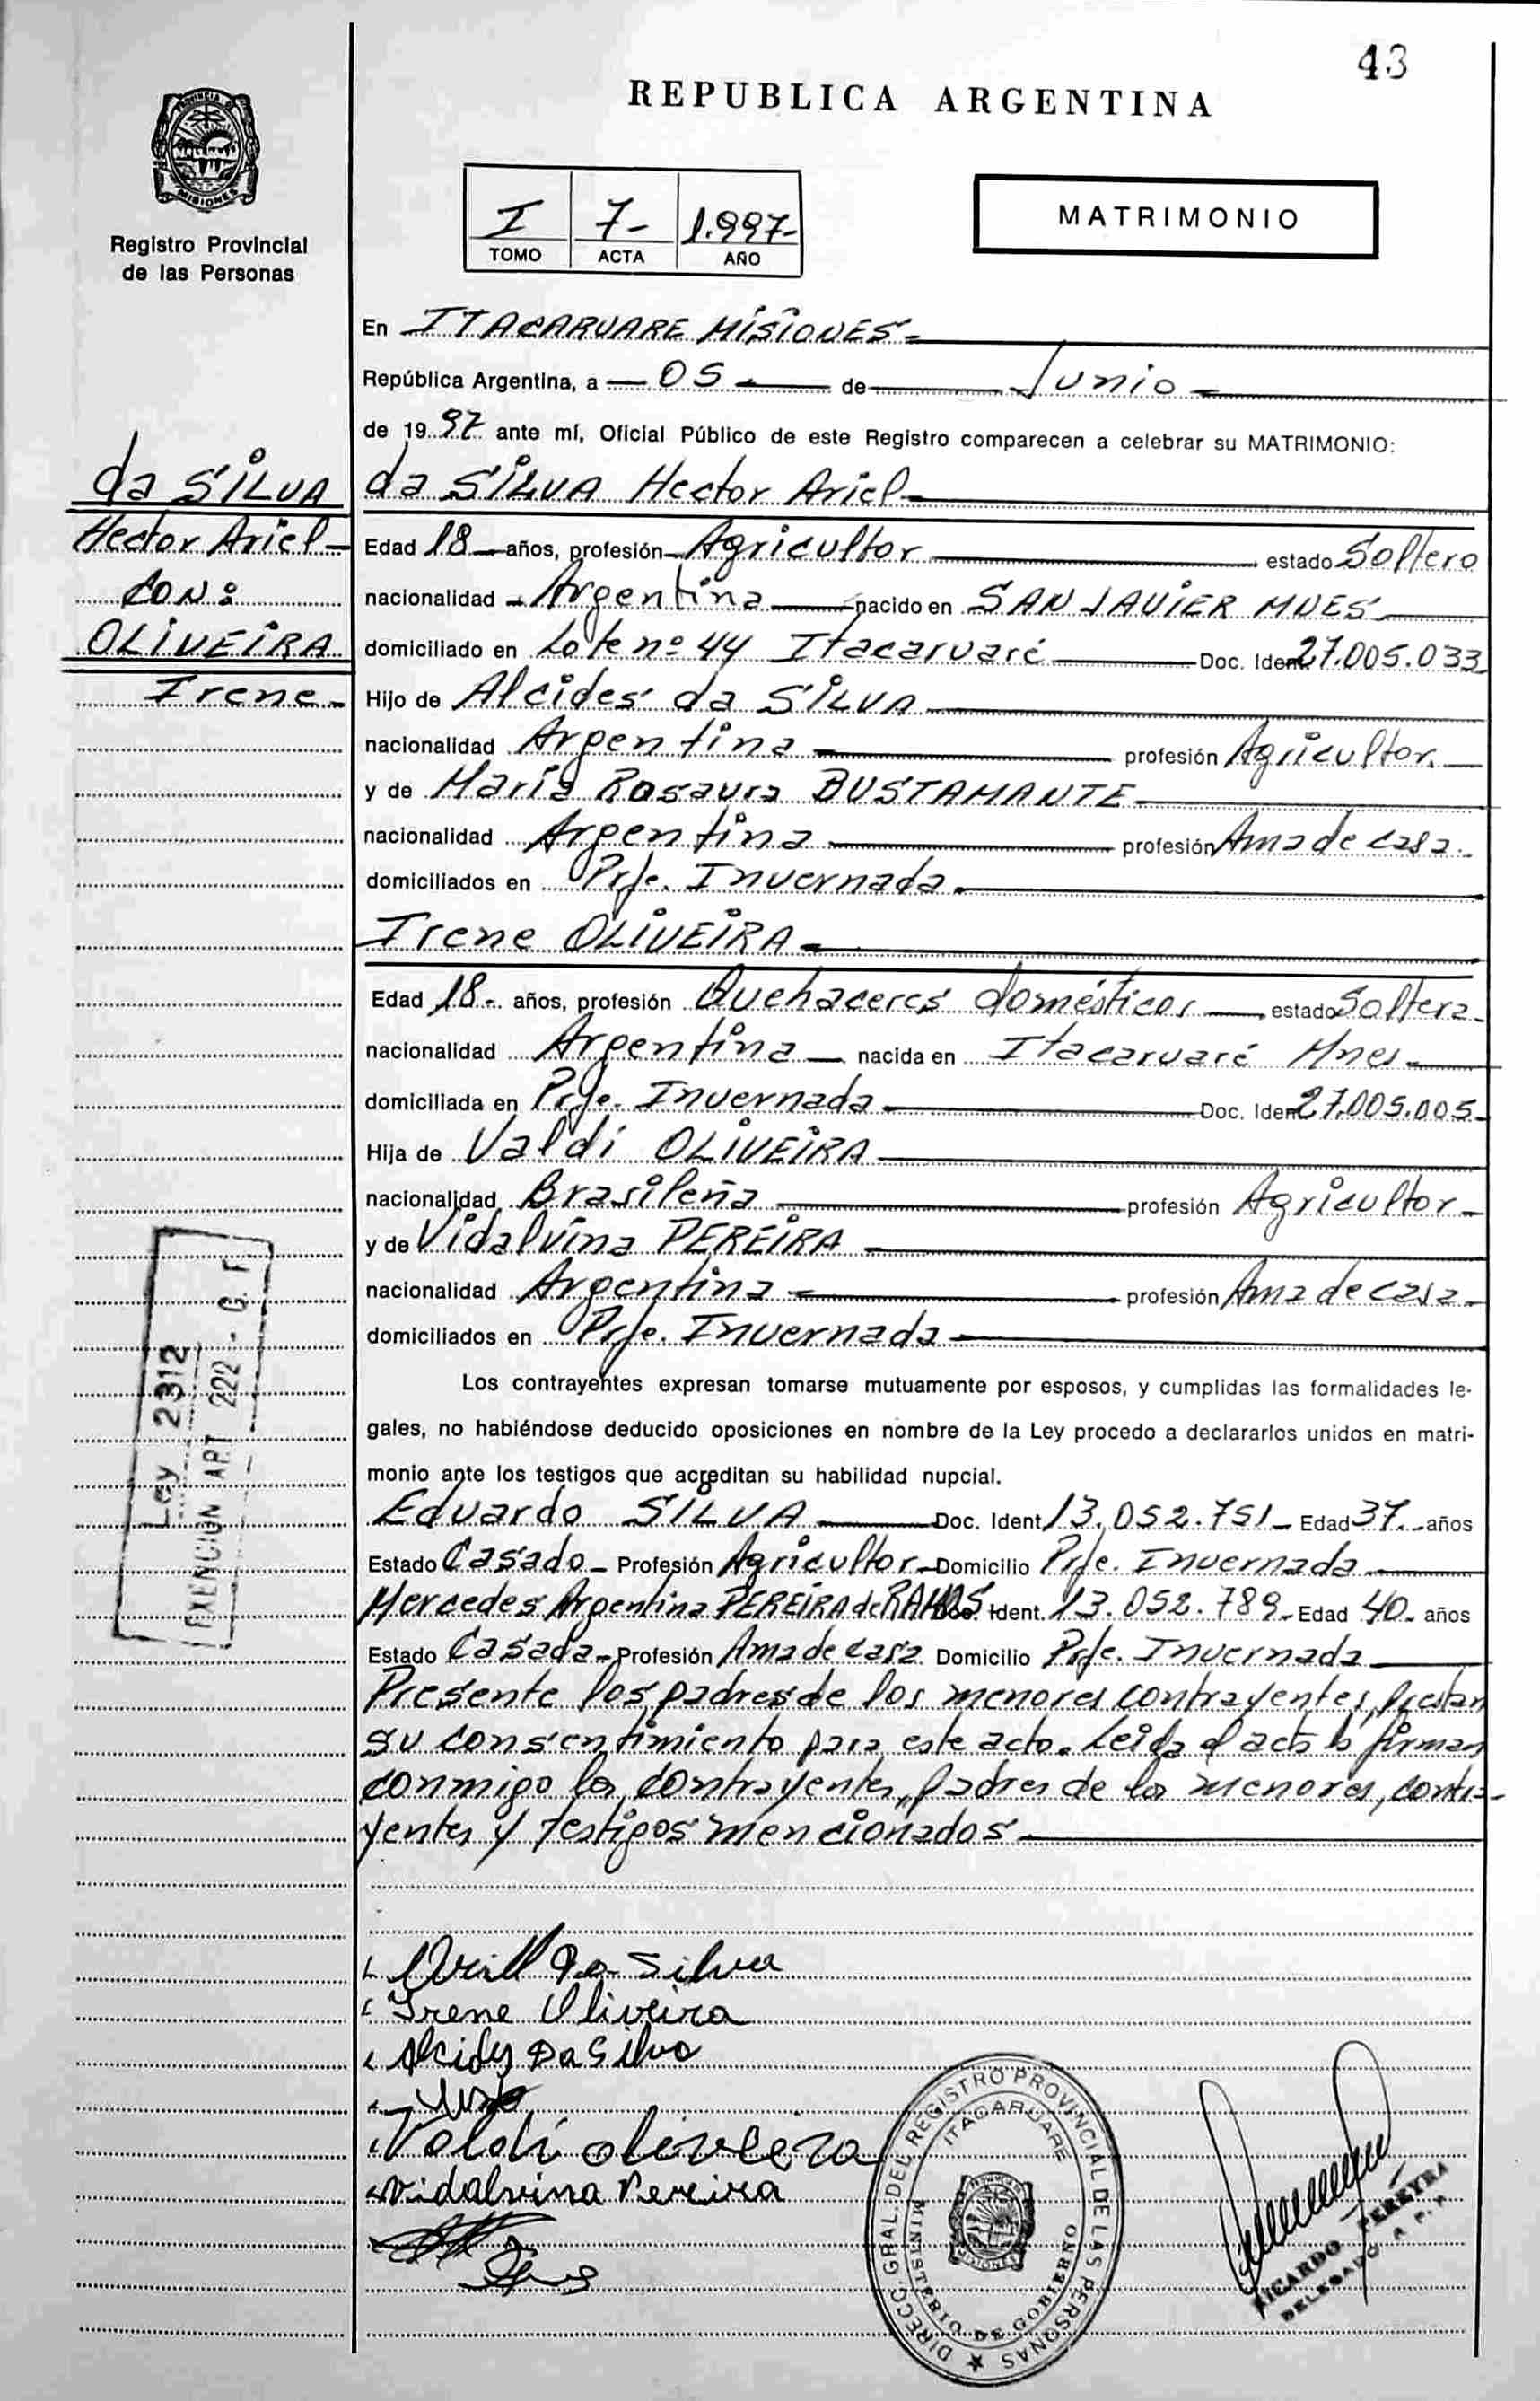 43
REPUBLICA ARGENTINA
PROVINCIA D
MISIONES
Registro Provincial
de las Personas
I 7- 1.997-
TOMO ACTA AÑO
MATRIMONIO
En ITACARUARE MISIONES-
República Argentina, a - 05 - de - Junio -
de 1997 ante mí, Oficial Público de este Registro comparecen a celebrar su MATRIMONIO:
da SILVA
Hector Ariel-
CON:
OLIVEIRA
Irene-
da SILVA Hector Ariel-
Edad 18- años, profesión- Agricultor - estado Soltero
nacionalidad - Argentina - nacido en SAN JAVIER MNES-
domiciliado en Lote nº 44 Itacaruaré - Doc. Ident 27.005.033
Hijo de Alcides da SILVA -
nacionalidad Argentina - profesión Agricultor.-
y de María Rosaura BUSTAMANTE-
nacionalidad Argentina - profesión Ama de casa.-
domiciliados en Prje. Invernada-
Irene OLIVEIRA-
Edad 18- años, profesión Quehaceres domésticos - estado Soltera-
nacionalidad Argentina - nacida en Itacaruaré Mnes-
domiciliada en Prje. Invernada - Doc. Iden 27.005.005-
Hija de Valdi OLIVEIRA-
nacionalidad Brasileña - profesión Agricultor-
y de Vidalvina PEREIRA -
nacionalidad Argentina - profesión Ama de casa-
domiciliados en Prje. Invernada-
Los contrayentes expresan tomarse mutuamente por esposos, y cumplidas las formalidades le-
gales, no habiéndose deducido oposiciones en nombre de la Ley procedo a declararlos unidos en matri-
monio ante los testigos que acreditan su habilidad nupcial.
Ley 2312
EXENCION ART 222 - C. F.
Eduardo SILVA - Doc. Ident 13.052.751- Edad 37.- años
Estado Casado- Profesión Agricultor- Domicilio Prje. Invernada-
Mercedes Argentina PEREIRA de RAMOS Doc. Ident. 13.052.789- Edad 40- años
Estado Casada- Profesión Ama de casa Domicilio Prje. Invernada-
Presente los padres de los menores contrayentes, prestan
su consentimiento para este acto. Leida el acta la firman
conmigo los contrayentes, padres de los menores, contra-
yentes y testigos mencionados-
Ariel Da Silva
Irene Oliveira
Alcides Da Silva
Valdi oliveira
Vidalvina Pereira
DIRECC. GRAL. DEL REGISTRO PROVINCIAL DE LAS PERSONAS
ITACARUARE
MINISTERIO DE GOBIERNO
MISIONES
RICARDO PEREYRA
DELEGADO R. P. P.